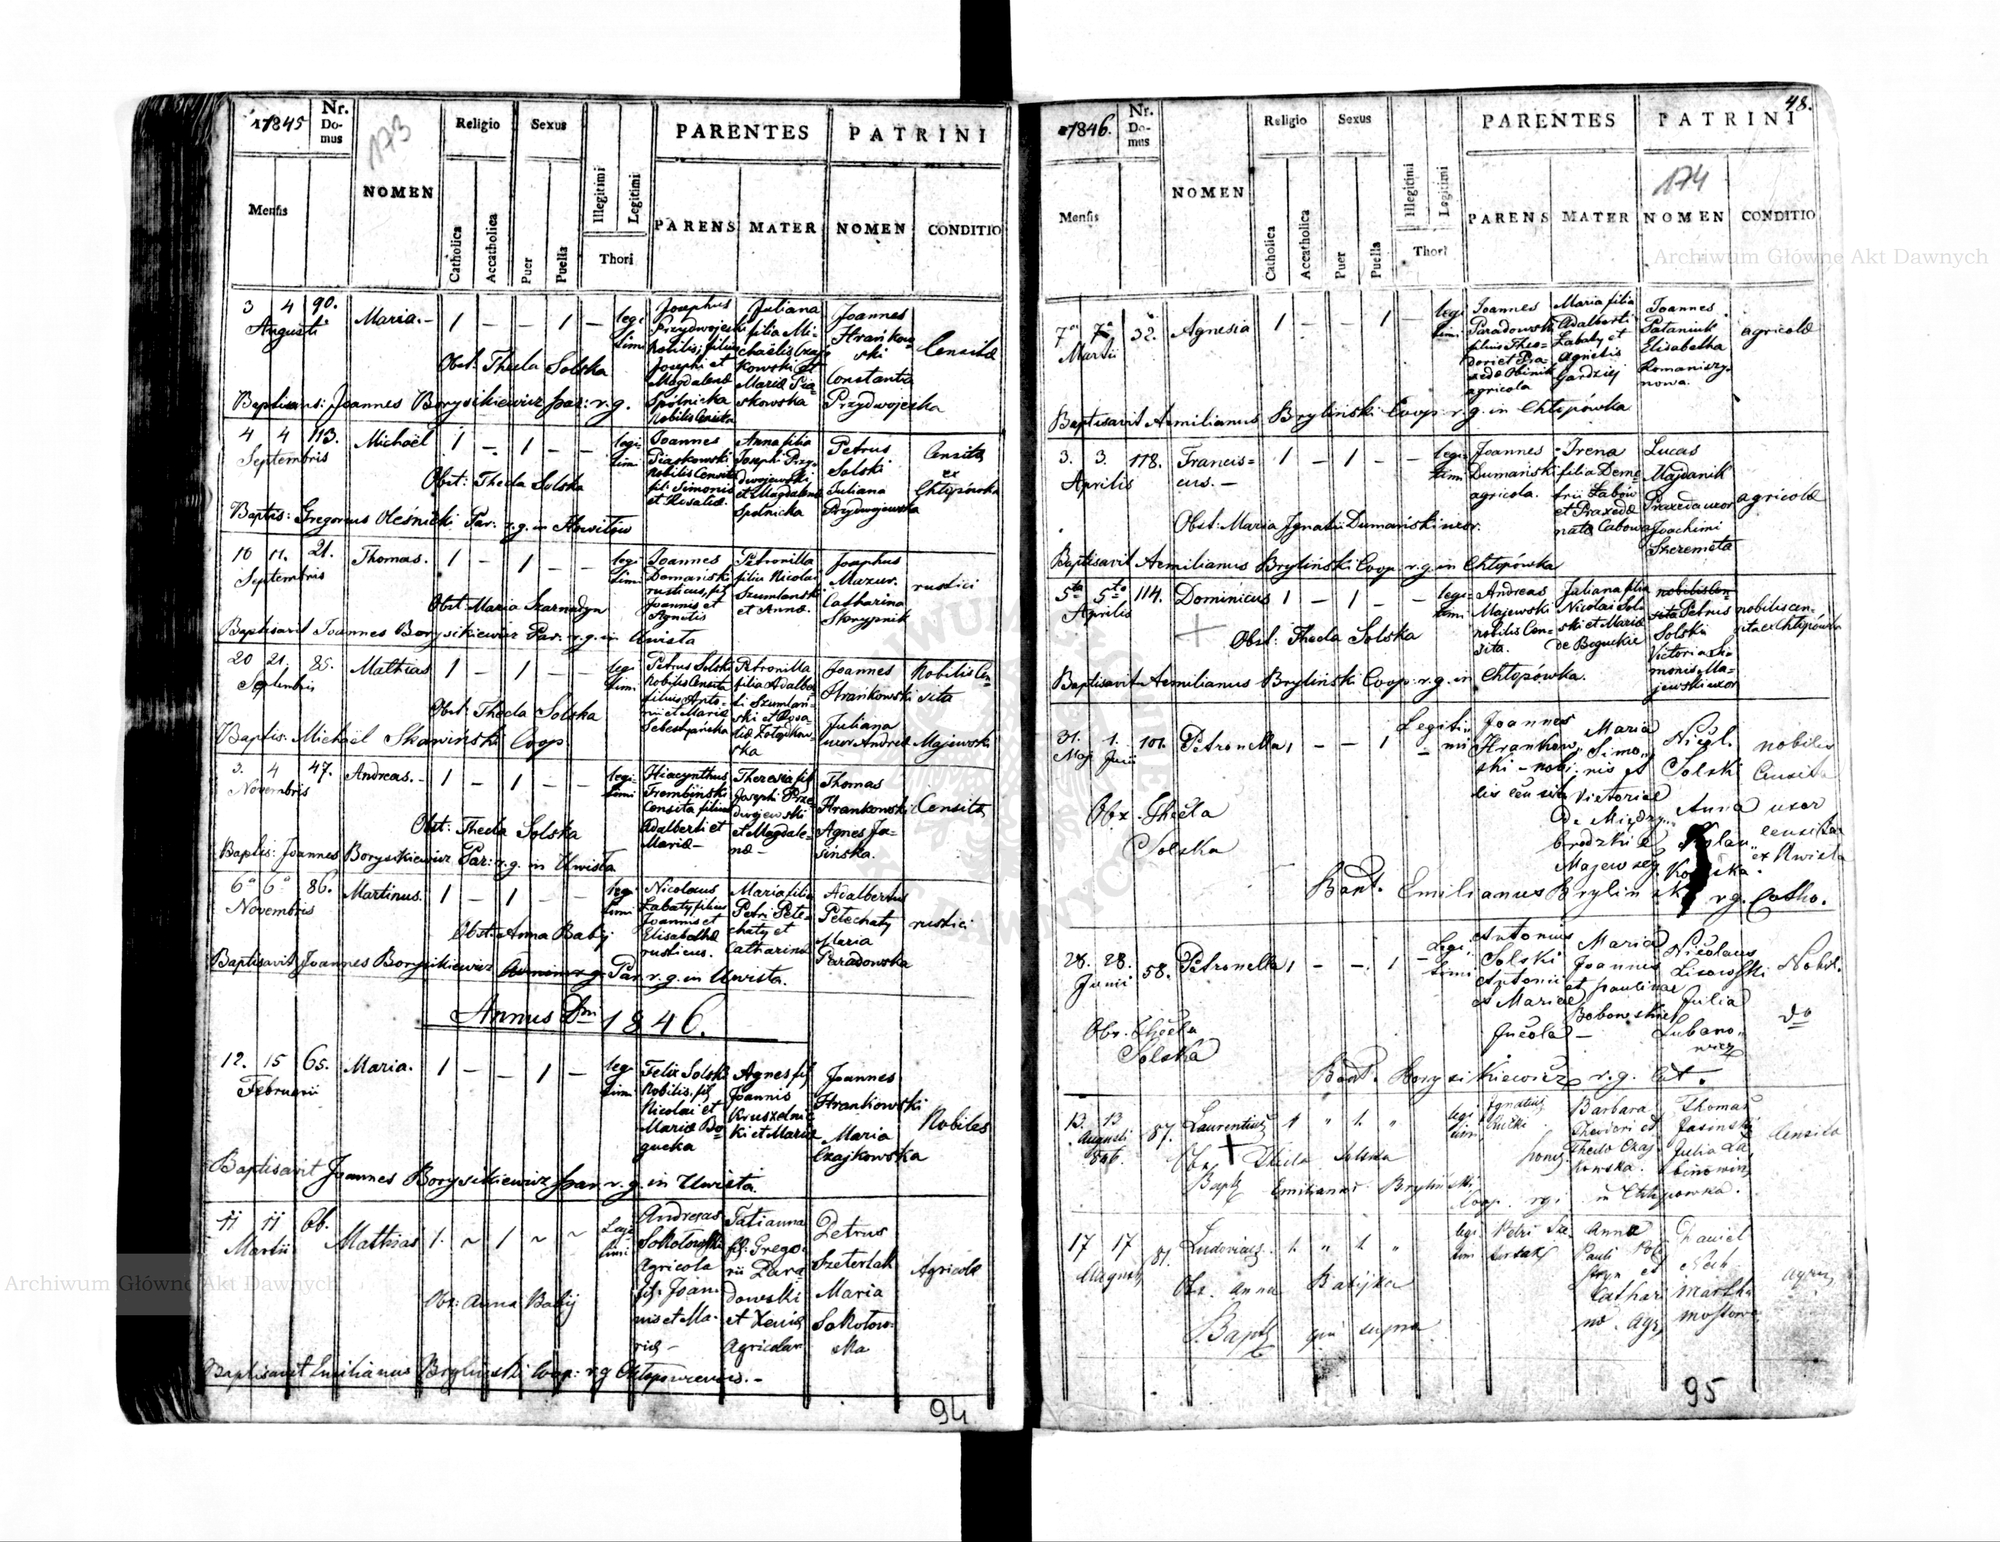 1845
Nr. Do- mus
173
NOMEN
Religio
Sexus
Illegitimi
Legitimi
PARENTES
PATRINI
Mensis
Catholica
Accatholica
Puer
Puella
Thori
PARENS
MATER
NOMEN
CONDITIO
3 4 90.
Augusti
Maria.-
1 - - 1 -
legi-
timi
Josephus
nobilis, filius
Josephi et
Magdalenæ
Spolnicka
Nobilis Censita
Juliana
filia Mi-
chaëlis Czaj-
kowski et
Mariæ Pia-
skowska
Joannes
Hrańkow-
ski
Constantia
Przydwojecka
Censitæ
Obst: Thecla Solska
Baptisans: Joannes Borysikiewicz par: r.g.
4 4 113.
Septembris
Michaël
1 - 1 - -
legi-
timi
Joannes
Piaskowski
nobilis Censita
fil: Simonis
et Rosaliæ.
Anna filia
Josephi Przy-
dwojewski
et Magdalena
Spolnicka
Petrus
Solski
Juliana
Przydwojewska
Censitæ
ex
Chłopówka
Obst: Thecla Solska
Baptis: Gregorius Oleśnicki Par: r.g. in
10 11. 21.
Septembris
Thomas.
1 - 1 - -
legi-
timi
Joannes
Domański
rusticus, fil:
Joannis et
Agnetis
Petronilla
filia Nicolai
Szumlański
et Annæ.
Josephus
Mazur.
Catharina
Skrypnik
rustici
Obst: Maria Szarnadyn
Baptisavit Joannes Borysikiewicz Par: r.g. in Uwista
20 21. 85.
Septembris
Mathias
1 - 1 - -
legi
timi
Petrus Solski
nobilis Censita
filius Anto-
nii et Mariæ
Petronilla
filia Adalber-
ti Szumlan-
ski et Rosa-
ska
Joannes
Hrankowski
Juliana
uxor Andreæ
Nobilis Cen-
sita
Majewski
Obst: Thecla Solska
Baptis: Michaël Skawiński Coop
3. 4 47.
Novembris
Andreas.-
1 - 1 - -
legi-
timi
Hiacynthus
Trembiński
Censita filius
Adalberti et
Mariæ -
Theresia fil:
Josephi Prze-
dwojewski
et Magdale-
næ -
Thomas
Hrankowski
Agnes Ja-
sińska.
Censitæ
Obst: Thecla Solska
Baptis: Joannes Borysikiewicz Par: r.g. in Uwista
6ª 6ª 86.
Novembris
Martinus.
1 - 1 - -
legi
timi
Nicolaus
Łabaty filius
Joannis et
Elisabethæ
rusticus.
Maria filia
Petri Pete-
chaty et
Catharina
Adalbertus
Petechaty
Maria
Paradowska
rustici
Obst: Anna Babij
Baptisavit Joannes Borysikiewicz Par. r.g. in Uwista.
Annus Dni 1846.
12. 15 65.
Februarii
Maria.
1 - - 1 -
legi
timi
Felix Solski
Nobilis, fil:
Nicolai et
Mariæ Bo-
gucka
Agnes fil:
Joannis
Kruszelnic-
ki et Mariæ
Joannes
Hrankowski
Maria
Czajkowska
Nobiles
Baptisavit Joannes Borysikiewicz par. r.g. in Uwista.
11 11 66.
Martii
Mathias
1. ~ 1 ~ ~
Legi
timi
Andreas
Sokołowski
Agricola
fil: Joan-
nis et Ma-
riæ -
Tatianna
fil: Grego-
rii Para-
dowski
et Xeniæ
Agricolarum
Petrus
Szeterlak
Maria
Sokołow-
ska
Agricolæ
Obs: Anna Babij
Baptisavit Emilianus Bryliński Coop: r.g
94
1846.
48.
Nr. Do- mus
NOMEN
Religio
Sexus
Illegitimi
Legitimi
PARENTES
PATRINI
174
Mensis
Catholica
Accatholica
Puer
Puella
Thori
PARENS
MATER
NOMEN
CONDITIO
7ª 7ª 32.
Martii
Agnesia
1 - - 1 -
legi
timi
Joannes
Paradowski
filius Theo-
dori et Pra-
xedæ
agricola
Maria filia
Adalberti
Łabaty et
Agnetis
Gardziej
Joannes
Pataniuk
Elisabetha
Romaniszy-
nowa.
agricolæ
Baptisavit Aemilianus Bryliński Coop. r.g. in Chłopówka
3. 3. 118.
Aprilis
Francis-
cus. -
1 - 1 -
legi-
timi
Joannes
Dumański
agricola.
Irena
filia Deme-
trii Łabów
et Praxedæ
nata Cabowa
Lucas
Majdanik
Praxeda uxor
Joachimi
Szeremeta
agricolæ
Obst: Maria Ignatii Dumański uxor.
Baptisavit Aemilianus Bryliński Coop. r.g. in Chłopówka
5ta 5to 114.
Aprilis
Dominicus
1 - 1 -
legi-
timi
Andreas
Majewski
nobilis Cen-
sita.
Juliana filia
Nicolai Sol-
ski et Mariæ
de Boguckie
nobilis Cen-
sita Petrus
Solski
Victoria Si-
monis Ma-
jewski uxor
nobilis cen-
sita ex Chłopówka
Obst: Thecla Solska
Baptisavit Aemilianus Bryliński Coop. r.g. in Chłopówka.
31. 1. 101.
Maj. Junii
Petronella
1 - - 1
Legiti-
mi
Joannes
Hrankow-
ski - nobi-
lis censita
Maria
Simo-
nis et
Victoriæ
de Między-
brodzkie
Majewscy
Nicol.
Solski
Anna uxor
nobilis
Censita
censita
ex Uwista
Obs. Thecla
Solska
Bapt. Emilianus Bryliński r.g.
28. 28. 58.
Junii
Petronella
1 - - 1
Legi
timi
Antonius
Solski
Antonii
et Mariæ
Maria
Joannis
et Paulinæ
Bobowskie
Nicolaus
Lisowski
Julia
Lubano-
wicz
Nobil.
do
Obs. Thecla
Solska
Bapt. Borysikiewicz r.g.
13. 13 87.
Augusti
846.
Laurentius
1 " 1. "
legi
timi
Ignatius
Barbara
Theodori et
Theclæ Czaj-
kowska.
Thomas
Jasinski
Julia
Censita
Obs. Thecla Solska
Bapt Emilianus Bryliński
Coop. rg. in Chłopowka.
17 17 81.
Augusti
Ludovicus.
1. " 1. "
legi
timi
Petri
Anna
Pauli
et
Cathari
næ Agr.
Daniel
Martha
Mostowa
Obs. Anna Babijka
Bapt qui supra
95
Archiwum Główne Akt Dawnych
Archiwum Główne Akt Dawnych